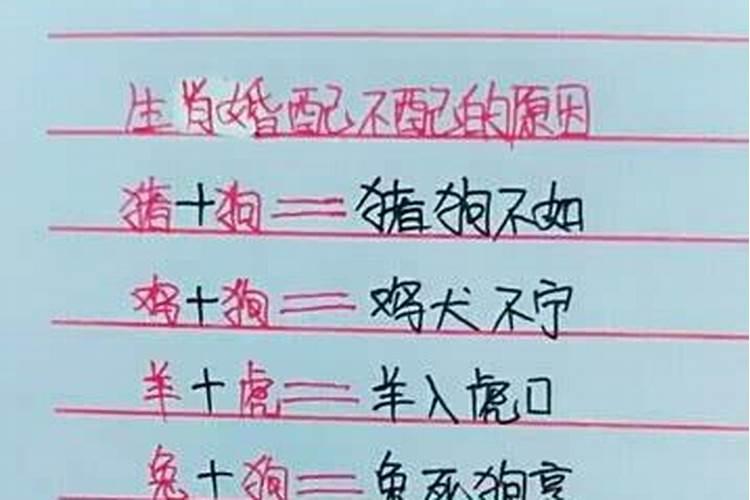 生肖婚配不配的原因
猪+狗=猪狗不如
鸡+狗=鸡犬不宁
羊+虎=羊入虎口
兔+狗=兔死狗烹